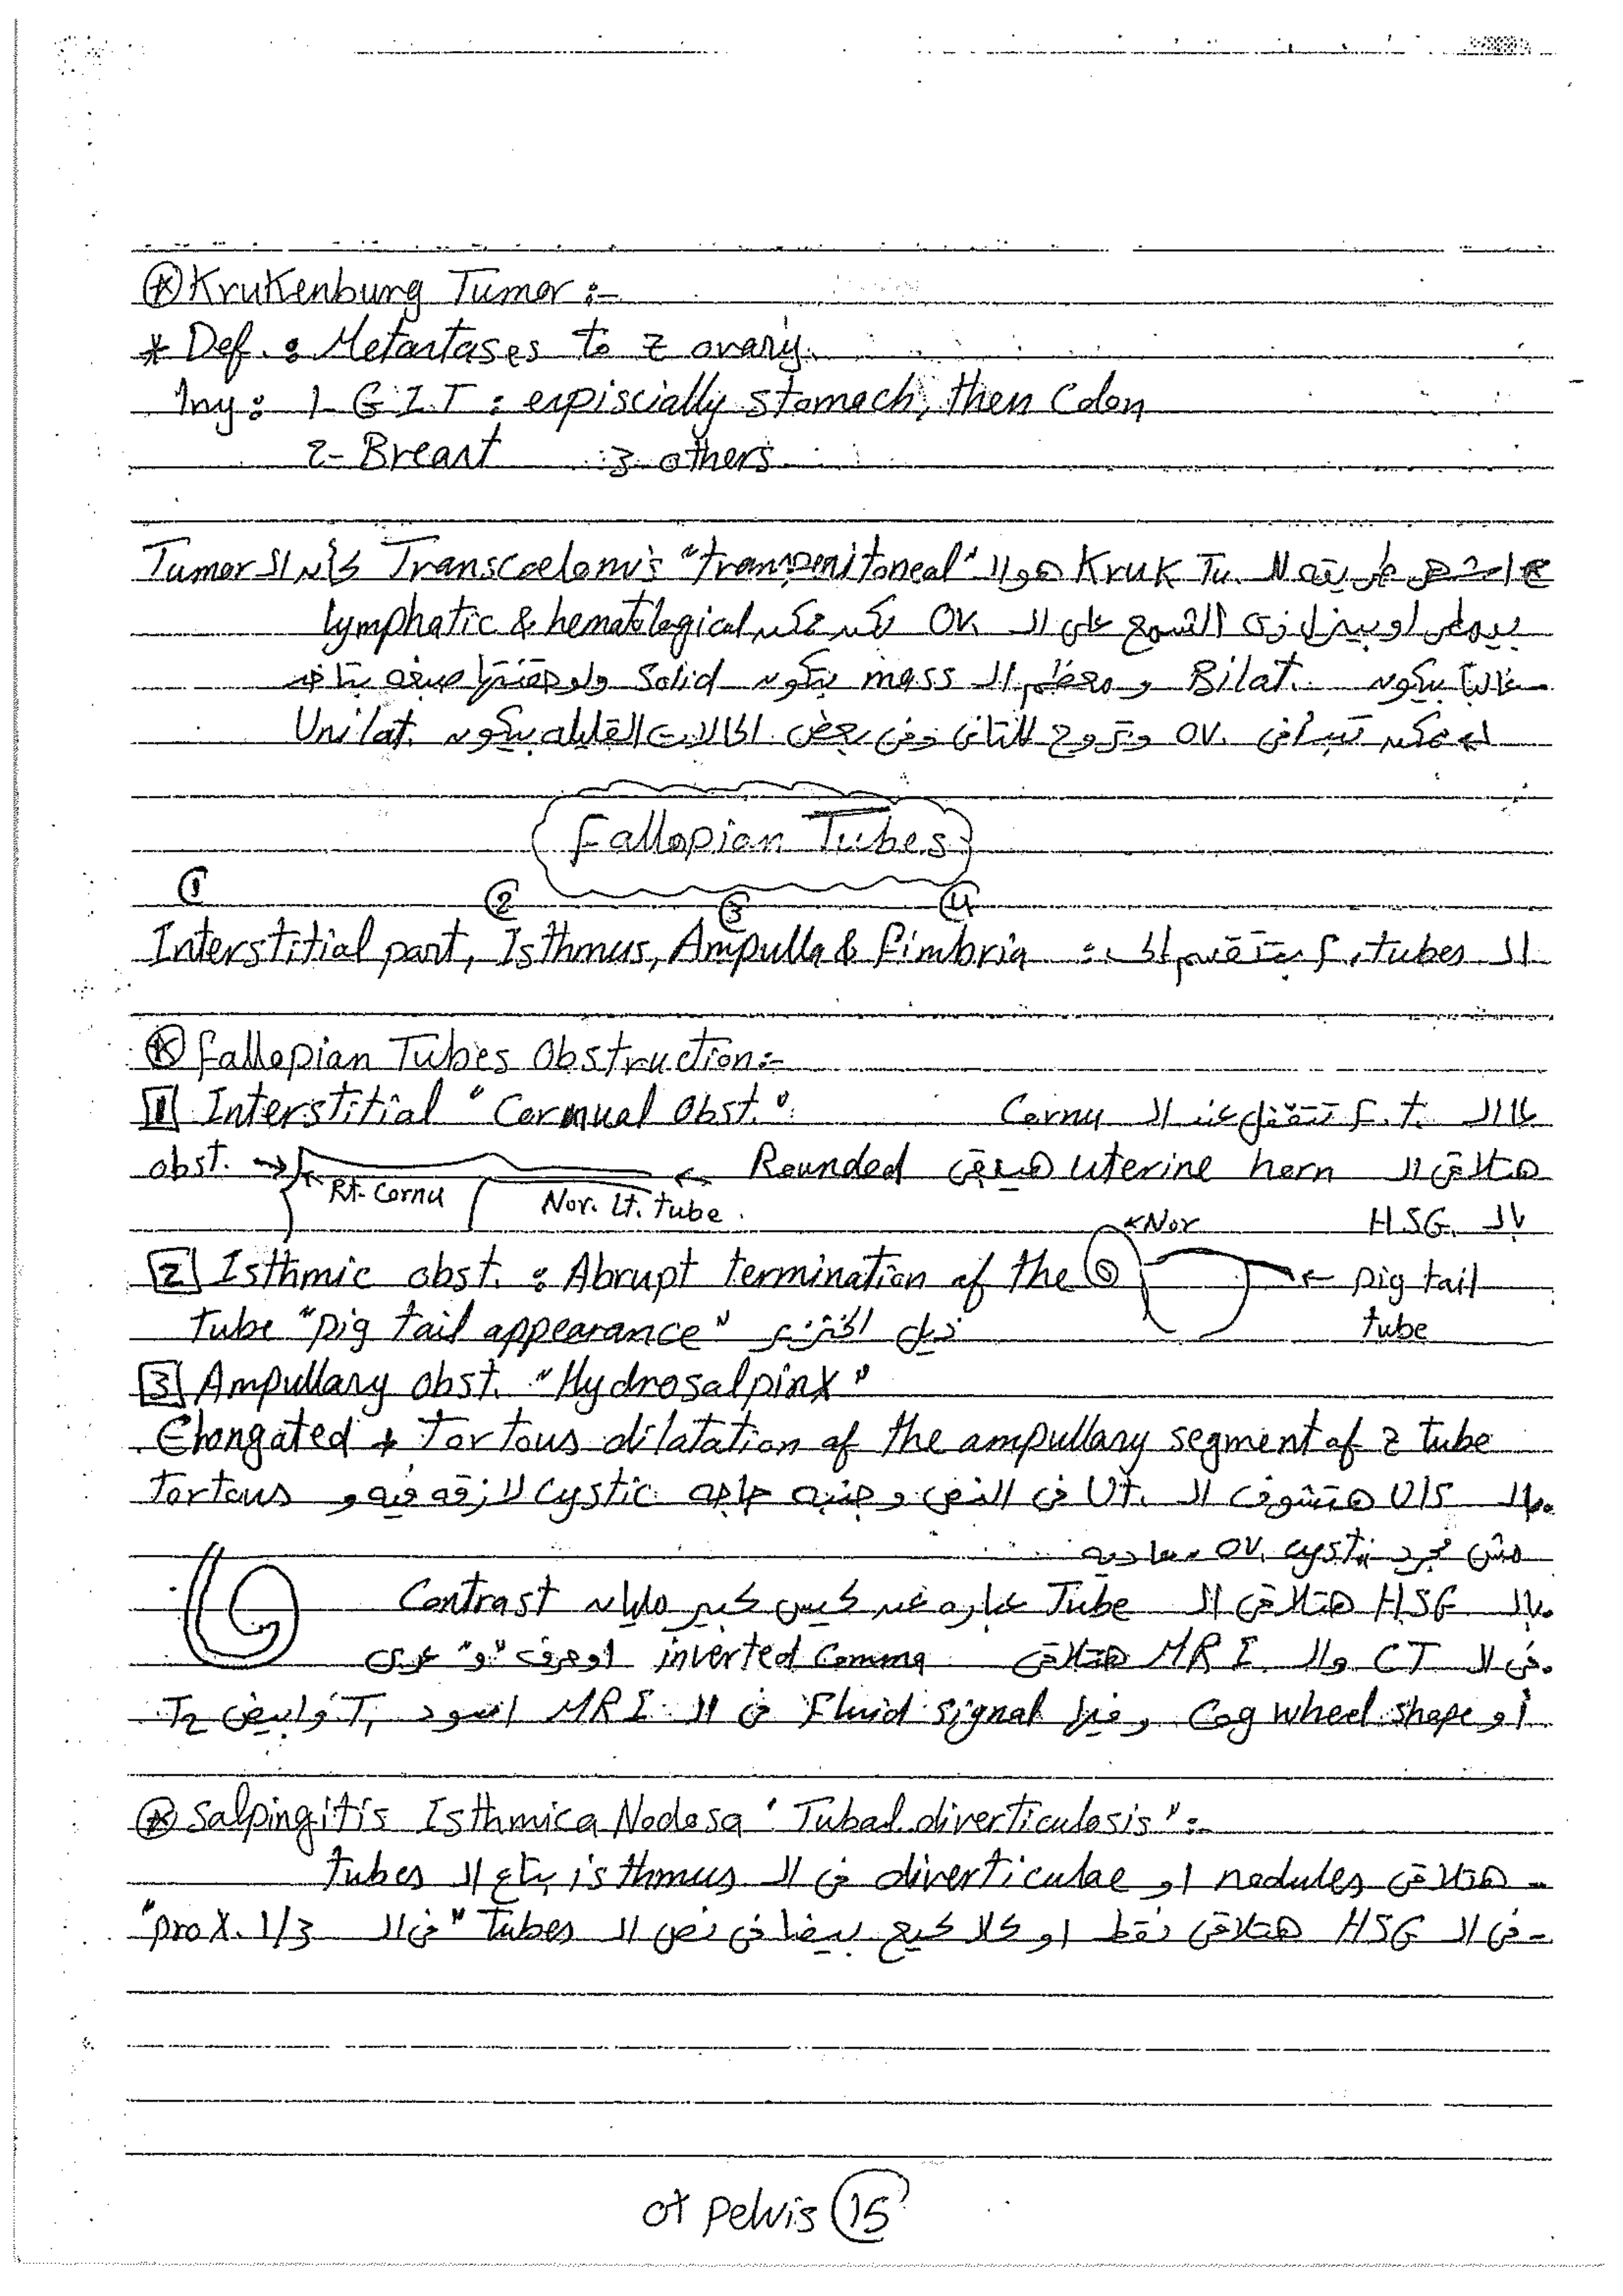 * Krukenburg Tumor :-
* Def. : Metastases to z ovary.
1ny : 1- G.I.T : espiscially stomach, then Colon
2- Breast 3- others
اشهر طريقة لل Kruk Tu. هو ال "transperitoneal" Transcoelomic كأن ال Tumor
بيمطر او بينزل زى الشمع على ال OV. لكن ممكن lymphatic & hematological
غالباً بيكون Bilat. و معظم ال mass بتكون Solid ولو حقنتها صبغه بتاخد
ممكن تبدأ فى OV. وتروح للتانى وفى بعض الحالات القليله بيكون Unilat.
Fallopian Tubes
① ② ③ ④
ال F. tubes بتتقسم الى :- Interstitial part, Isthmus, Ampulla & Fimbria
* Fallopian Tubes Obstruction:-
1 Interstitial "Cornual Obst." ال F.t. تتقفل عند ال Cornu
obst. → Rt. Cornu Nor. Lt. tube. ← هتلاقى ال uterine horn هيبقى Rounded
بال HSG.
2 Isthmic obst. : Abrupt termination of the ←Nor ← pig tail tube
tube "pig tail appearance" ذيل الخنزير
3 Ampullary obst. "Hydrosalpinx"
Elongated + tortous dilatation of the ampullary segment of z tube
بال U/S هتشوف ال Ut. فى النص وجنبه حاجه Cystic لازقه فيه و tortous
مش مجرد OV. cyst عاديه
بال HSG هتلاقى ال Tube عباره عن كيس كبير مليان Contrast
فى ال CT وال MRI هتلاقى inverted Comma او حرف "و" عربى
أو Cog wheel shape وفيها Fluid signal فى ال MRI اسود T1 وابيض T2
* Salpingitis Isthmica Nodosa "Tubal diverticulosis" :-
- هتلاقى nodules او diverticulae فى ال isthmus بتاع ال tubes
- فى ال HSG هتلاقى نقط او كلاكيع بيضا فى نص ال Tubes "فى ال prox. 1/3"
Pelvis 15